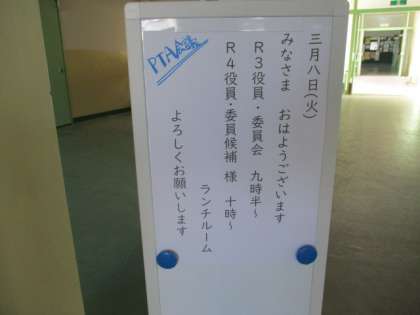 三月八日(火)
みなさま　おはようございます
R3役員・委員会　九時半～
R4役員・委員候補　様　十時～
ランチルーム
よろしくお願いします
PTA会議